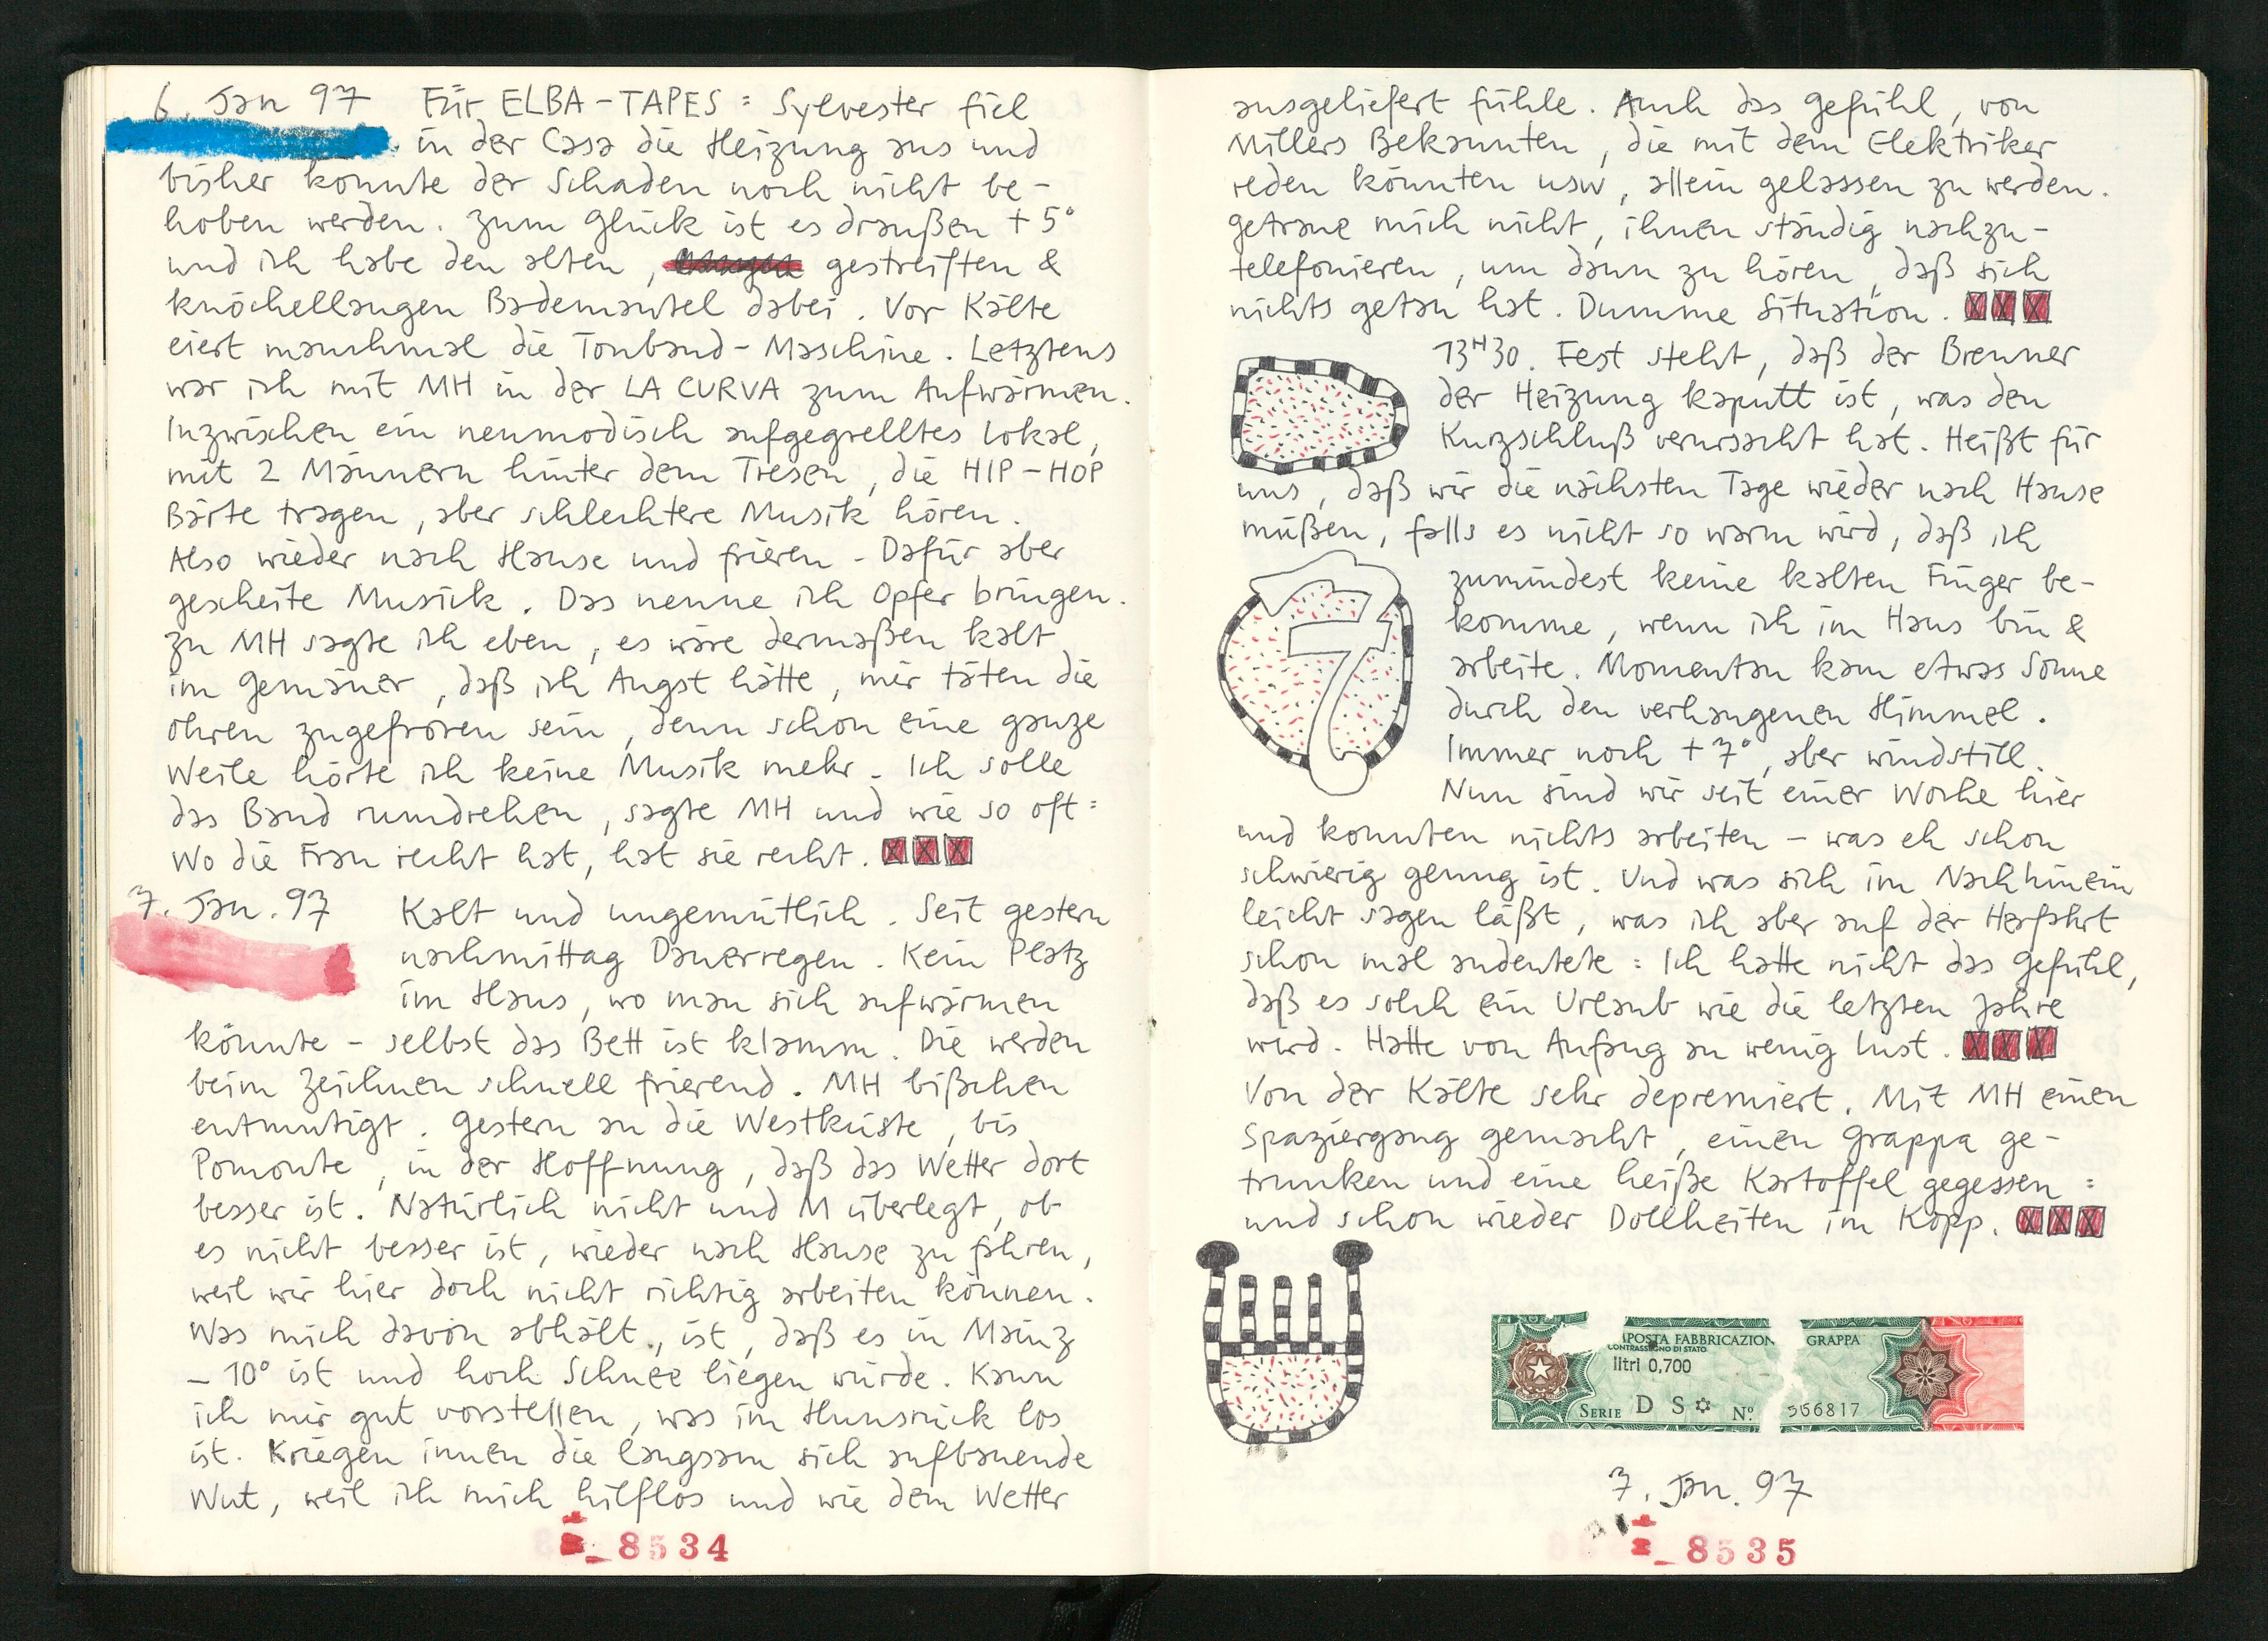 6. Jan 97 Für ELBA-TAPES: Sylvester fiel
in der Casa die Heizung aus und
bisher konnte der Schaden noch nicht be-
hoben werden. Zum Glück ist es draußen +5°
und ich habe den alten, gestreiften &
knöchellangen Bademantel dabei. Vor Kälte
eiert manchmal die Tonband-Maschine. Letztens
war ich mit MH in der LA CURVA zum Aufwärmen.
Inzwischen ein neumodisch aufgegrelltes Lokal,
mit 2 Männern hinter dem Tresen, die HIP-HOP
Bärte tragen, aber schlechtere Musik hören.
Also wieder nach Hause und frieren - Dafür aber
gescheite Musick. Das nenne ich Opfer bringen.
Zu MH sagte ich eben, es wäre dermaßen kalt
im Gemäuer, daß ich Angst hätte, mir täten die
Ohren zugefroren sein, denn schon eine ganze
Weile hörte ich keine Musik mehr. Ich solle
das Band rumdrehen, sagte MH und wie so oft:
Wo die Frau recht hat, hat sie recht.
7. Jan. 97 Kalt und ungemütlich. Seit gestern
nachmittag Dauerregen. Kein Platz
im Haus, wo man sich aufwärmen
könnte - selbst das Bett ist klamm. Die werden
beim Zeichnen schnell frierend. MH bißchen
entmutigt. Gestern an die Westküste, bis
Pomonte, in der Hoffnung, daß das Wetter dort
besser ist. Natürlich nicht und M überlegt, ob
es nicht besser ist, wieder nach Hause zu fahren,
weil wir hier doch nicht richtig arbeiten können.
Was mich davon abhält, ist, daß es in Mainz
-10° ist und hoch Schnee liegen würde. Kann
ich mir gut vorstellen, was im Hunsrück los
ist. Kriegen innen die langsam sich aufbauende
Wut, weil ich mich hilflos und wie dem Wetter
8534
ausgeliefert fühle. Auch das Gefühl, von
Millers Bekannten, die mit dem Elektriker
reden könnten usw, allein gelassen zu werden.
Getraue mich nicht, ihnen ständig nachzu-
telefonieren, um dann zu hören, daß sich
nichts getan hat. Dumme Situation.
13H30. Fest steht, daß der Brenner
der Heizung kaputt ist, was den
Kurzschluß verursacht hat. Heißt für
uns, daß wir die nächsten Tage wieder nach Hause
müßen, falls es nicht so warm wird, daß ich
zumindest keine kalten Finger be-
komme, wenn ich im Haus bin &
arbeite. Momentan kam etwas Sonne
durch den verhangenen Himmel.
Immer noch +7°, aber windstill.
Nun sind wir seit einer Woche hier
und konnten nichts arbeiten - was eh schon
schwierig genug ist. Und was sich im Nachhinein
leicht sagen läßt, was ich aber auf der Herfahrt
schon mal andeutete: Ich hatte nicht das Gefühl,
daß es solch ein Urlaub wie die letzten Jahre
wird. Hatte von Anfang an wenig Lust.
Von der Kälte sehr depremiert. Mit MH einen
Spaziergang gemacht, einen Grappa ge-
trunken und eine heiße Kartoffel gegessen:
und schon wieder Dollheiten im Kopp.
MPOSTA FABBRICAZION GRAPPA
CONTRASSEGNO DI STATO
litri 0,700
SERIE D S N° 556817
7. Jan. 97
8535